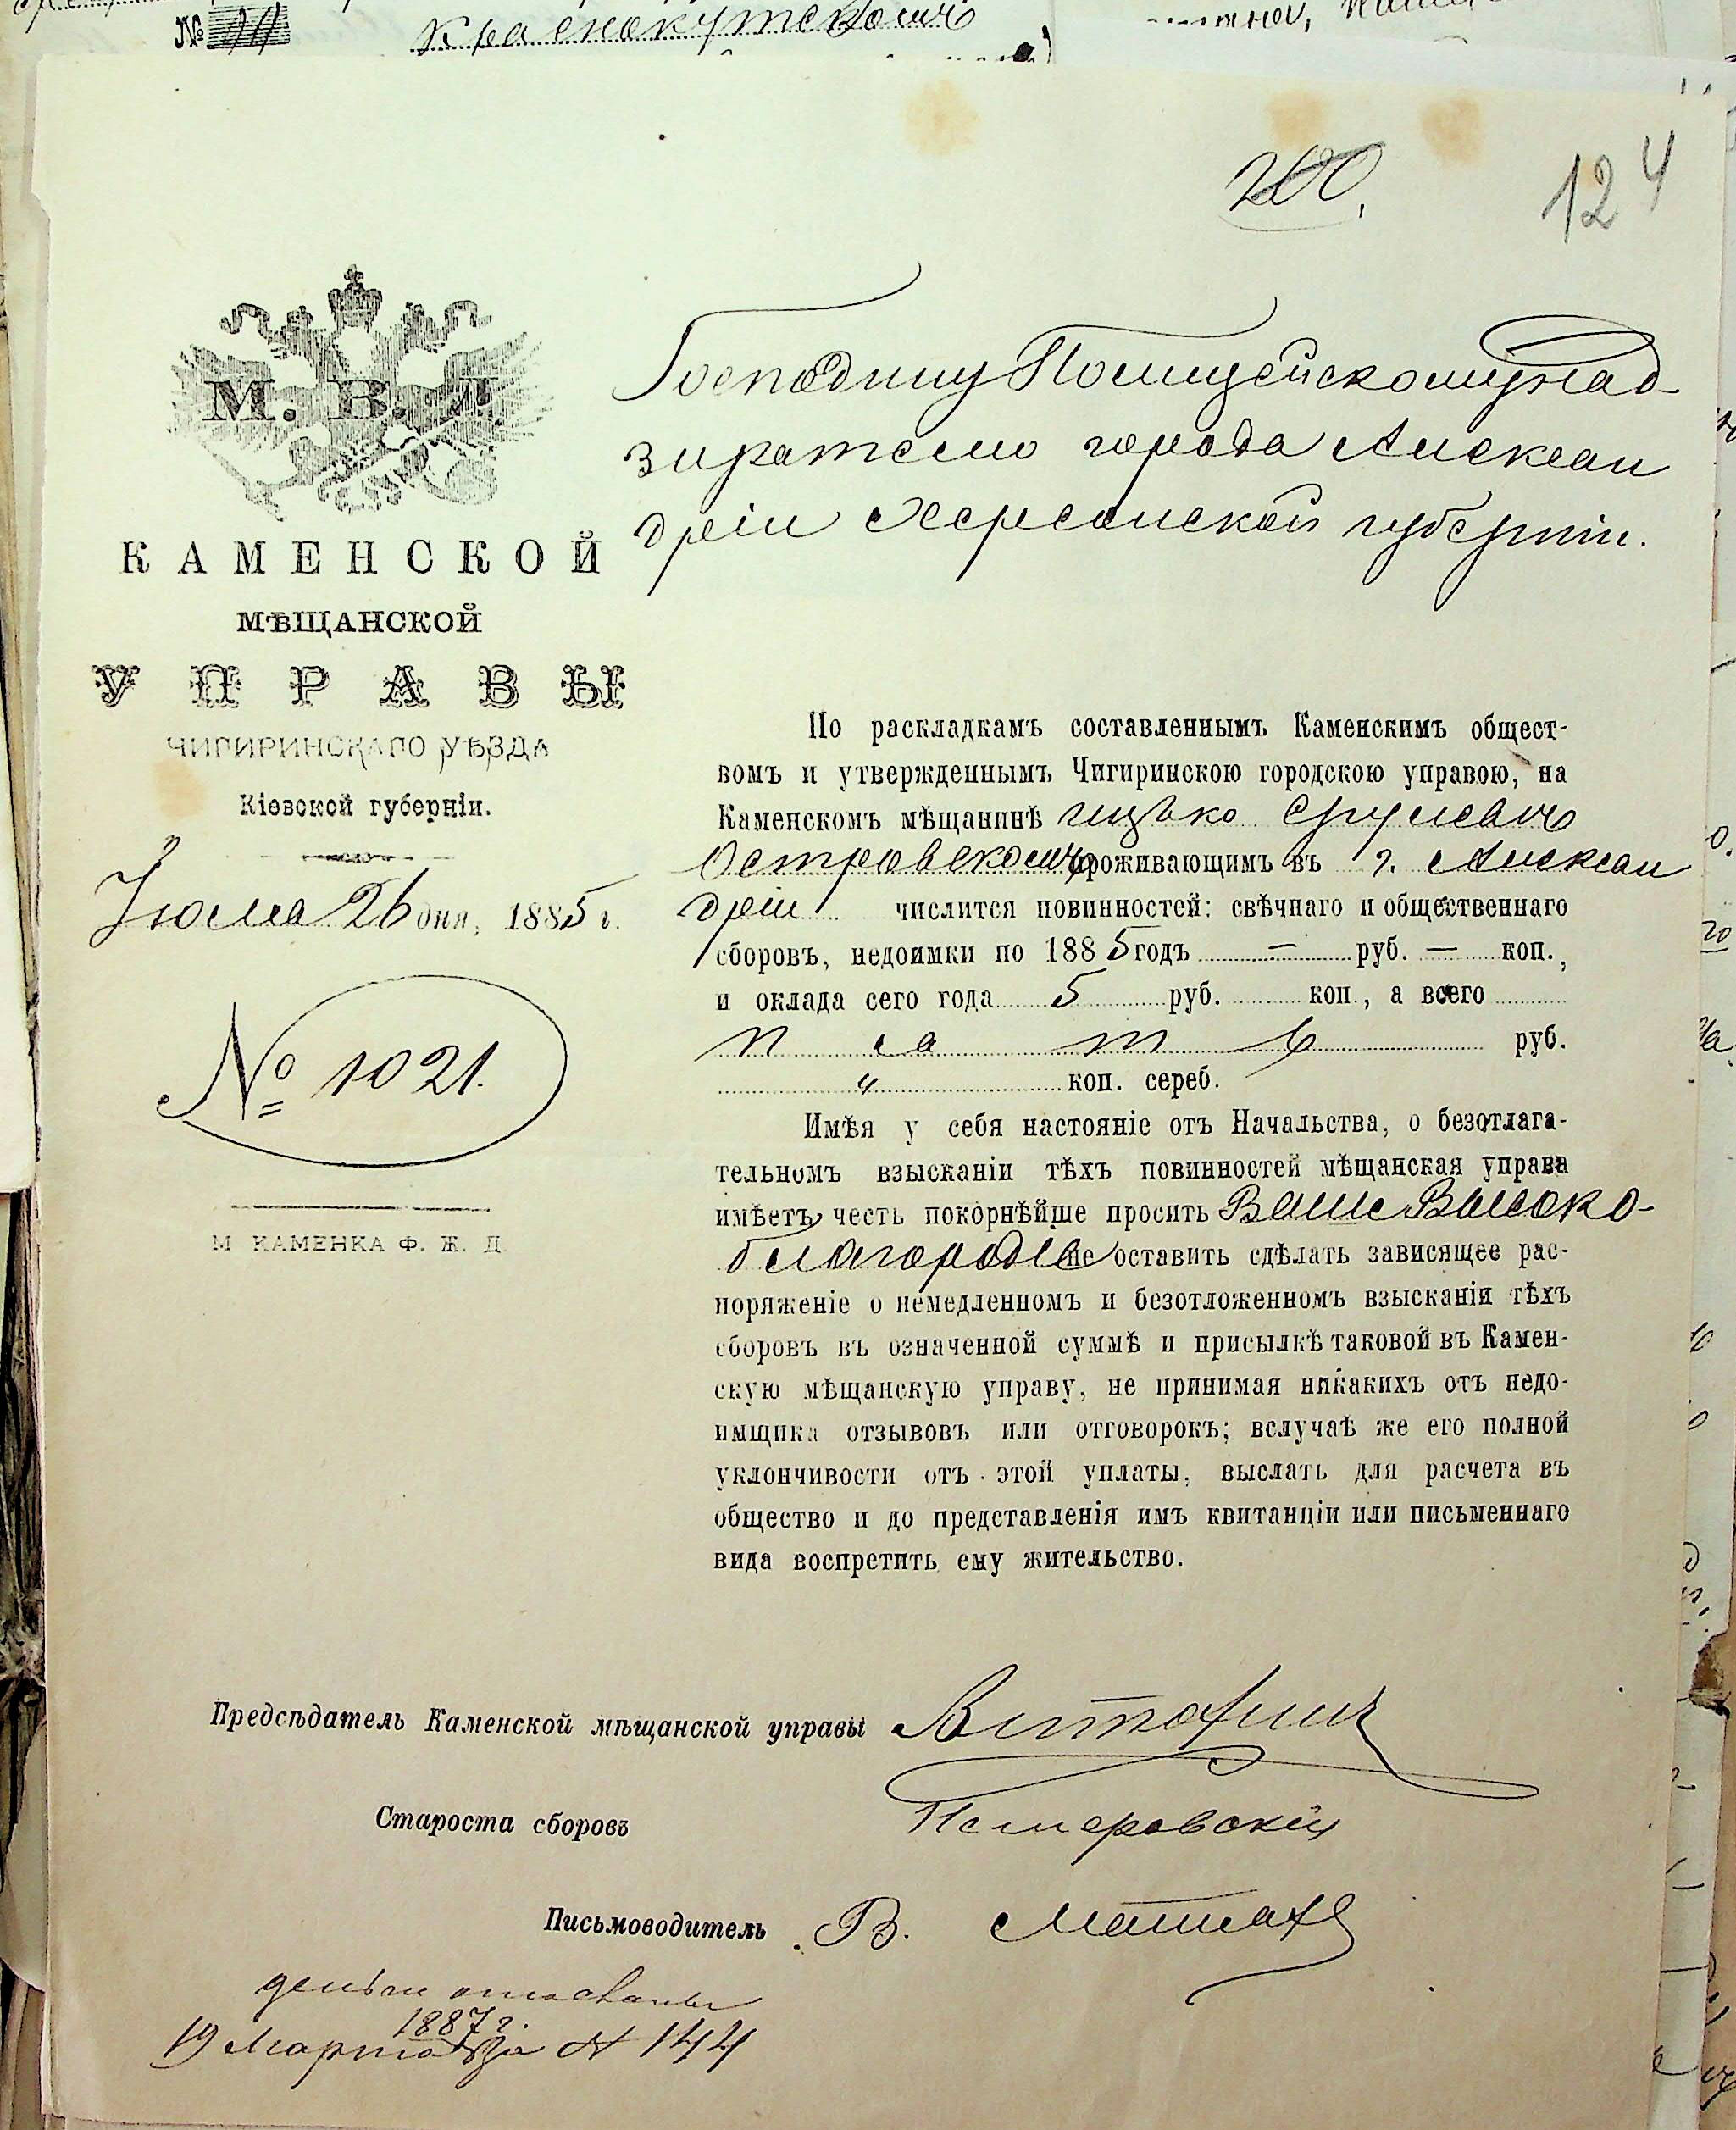 № 14 Краснокутскомъ
200.
124
М. В. Д.
КАМЕНСКОЙ
МѢЩАНСКОЙ
УПРАВЫ
ЧИГИРИНСКАГО УѢЗДА
Кіевской губерніи.
Іюля 26 дня, 1885 г.
№ 1021.
М. КАМЕНКА Ф. Ж. Д.
Господину Полицейскому над-
зирателю города Алексан
дріи Херсонской губерніи.
По раскладкамъ составленнымъ Каменскимъ общест-
вомъ и утвержденнымъ Чигиринскою городскою управою, на
Каменскомъ мѣщанинѣ Ицько Срулевъ
Островскомъ проживающимъ въ г. Алексан
дріи числится повинностей: свѣчнаго и общественнаго
сборовъ, недоимки по 1885 годъ — руб. — коп.,
и оклада сего года 5 руб. коп., а всего
пять руб.
" коп. сереб.
Имѣя у себя настояніе отъ Начальства, о безотлага-
тельномъ взысканіи тѣхъ повинностей мѣщанская управа
имѣетъ честь покорнѣйше просить Ваше Высоко-
благородіе не оставить сдѣлать зависящее рас-
поряженіе о немедленномъ и безотложенномъ взысканіи тѣхъ
сборовъ въ означенной суммѣ и присылкѣ таковой въ Камен-
скую мѣщанскую управу, не принимая никакихъ отъ недо-
имщика отзывовъ или отговорокъ; вслучаѣ же его полной
уклончивости отъ этой уплаты, выслать для расчета въ
общество и до представленія имъ квитанціи или письменнаго
вида воспретить ему жительство.
Предсѣдатель Каменской мѣщанской управы
Староста сборовъ
Письмоводитель В.
деньги отосланы
1887 г.
19 Марта за № 144